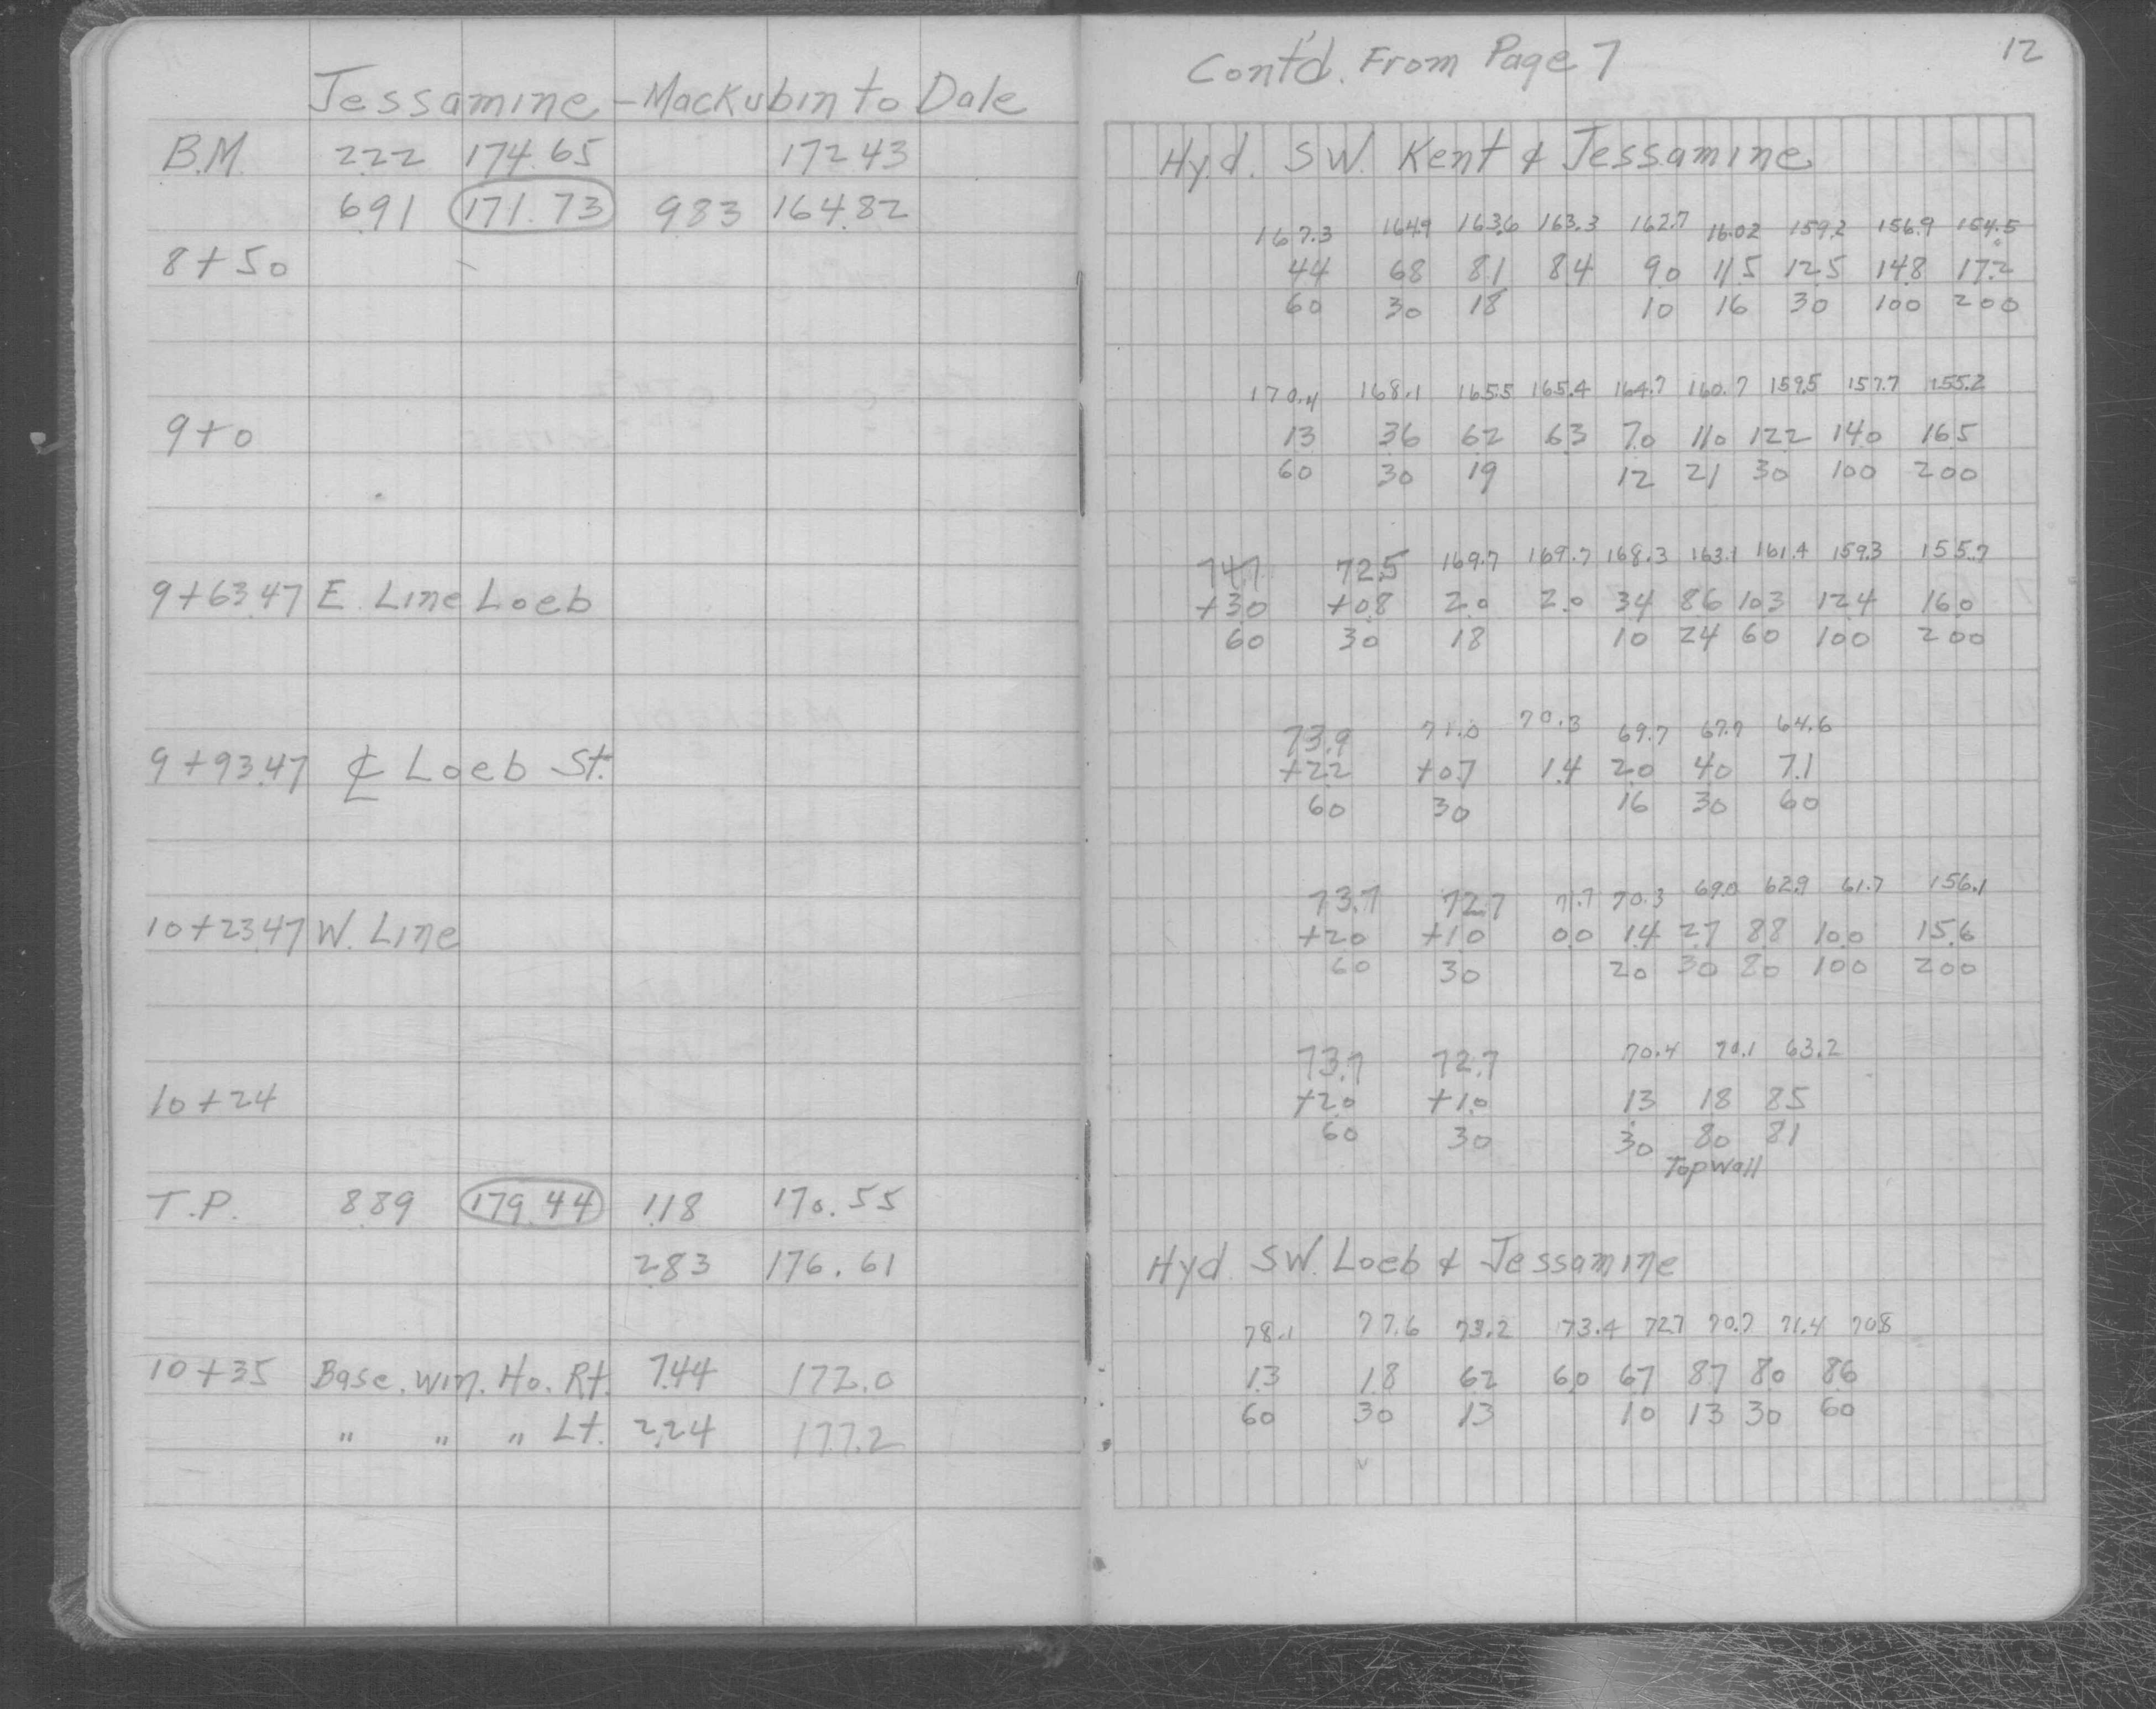 Jessamine - Mackubin to Dale
B.M. 2.22 174.65 172.43
6.91 171.73 9.83 164.82
8+50
9+0
9+63.47 E. Line Loeb
9+93.47 ℄ Loeb St.
10+23.47 W. Line
10+24
T.P. 8.89 179.44 1.18 170.55
2.83 176.61
10+35 Base. Win. Ho. Rt. 7.44 172.0
" " " Lt. 2.24 177.2
Cont'd. From Page 7
12
Hyd. S.W. Kent & Jessamine
167.3 164.9 163.6 163.3 162.7 16.02 159.2 156.9 154.5
4.4 6.8 8.1 8.4 9.0 11.5 12.5 14.8 17.2
60 30 18 10 16 30 100 200
170.4 168.1 165.5 165.4 164.7 160.7 159.5 157.7 155.2
1.3 3.6 6.2 6.3 7.0 11.0 12.2 14.0 16.5
60 30 19 12 21 30 100 200
74.7 72.5 169.7 169.7 168.3 163.1 161.4 159.3 155.7
+3.0 +0.8 2.0 2.0 3.4 8.6 10.3 12.4 16.0
60 30 18 10 24 60 100 200
73.9 71.0 70.3 69.7 67.7 64.6
+2.2 +0.7 1.4 2.0 4.0 7.1
60 30 16 30 60
73.7 72.7 71.7 70.3 69.0 62.9 61.7 156.1
+2.0 +1.0 0.0 1.4 2.7 8.8 10.0 15.6
60 30 20 30 80 100 200
73.7 72.7 70.4 70.1 63.2
+2.0 +1.0 1.3 1.8 8.5
60 30 30 80 81
Top Wall
Hyd. S.W. Loeb & Jessamine
78.1 77.6 73.2 73.4 72.7 70.7 71.4 70.8
1.3 1.8 6.2 6.0 6.7 8.7 8.0 8.6
60 30 13 10 13 30 60